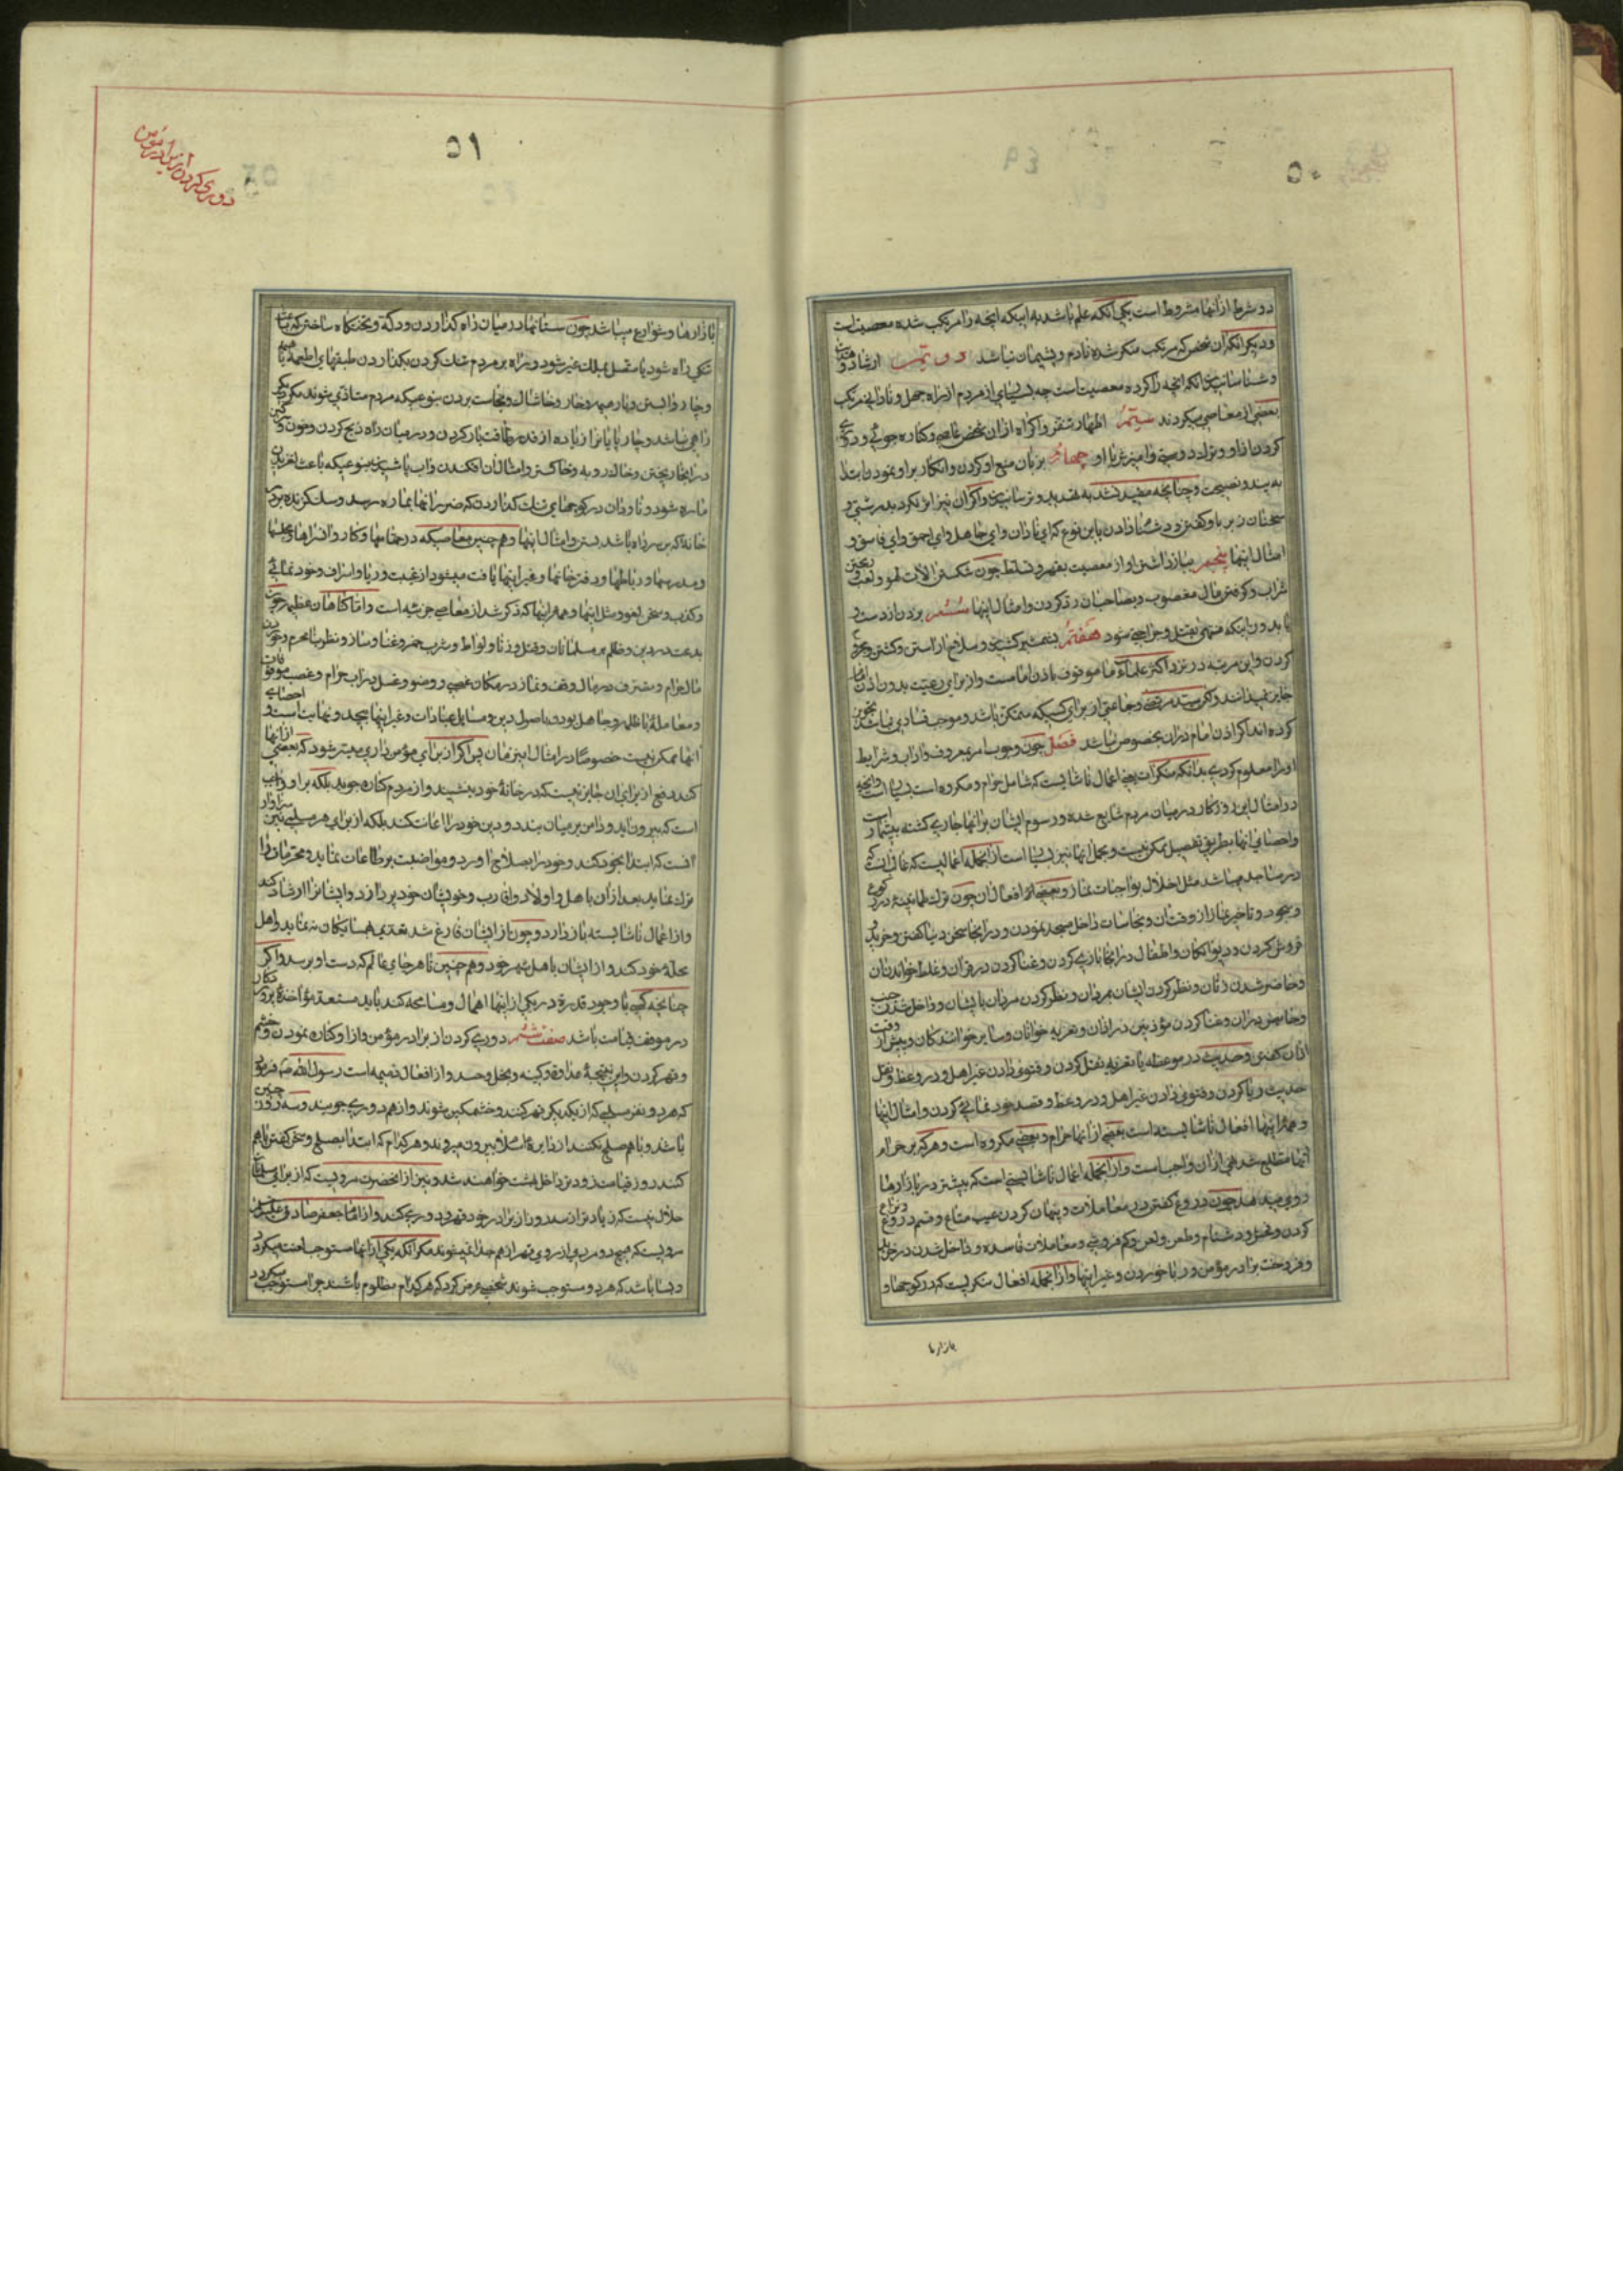 ۵۰
دو شرط از آنها مشروط است یکی آنکه علم باشد به اینکه آنچه را مرتکب شده معصیت است
و دیگر آنکه آن شخص که مرتکب منکر شده نادم و پشیمان نباشد دویّم ارشاد و هدایت
و شناسانیدن آنکه آنچه را کرده معصیت است چه بسیاری از مردم از راه جهل و نادانی مرتکب
بعضی از معاصی میگردند سیّم اظهار تنفر و اکراه از آن شخص عاصی و کناره جوئی و دوری
کردن از او و نزاد دوستی و آمیزش با او چهارم بزبان منع او کردن و انکار بر او نمودن ابتدا
به پند و نصیحت و چنانچه مفید نشد به تهدید و ترسانیدن و اگر آن نیز اثر نکرد به درشتی و
سخنان زبر با او گفتن و دشنام دادن باین نوع که ای نادان و ای جاهل و ای احمق و ای فاسق و
امثال اینها پنجم بازداشتن او از معصیت بقهر و تسلط چون شکستن آلات لهو و لعب و ریختن
شراب و گرفتن مال مغصوب و بصاحبان رد کردن و امثال اینها ششم بزدن از دست و
پا بدون اینکه منتهی بقتل و جراحی شود هفتم بشمشیر کشیدن و سلاح آراستن و کشتن و مجروح
کردن و این مرتبه در نزد اکثر علماء ما موقوف باذن امام است و از برای رعیت بدون اذن امام
جایز نمیدانند ولکن سید مرتضی و جماعتی از برای کسیکه متمکن باشد و موجب فسادی نباشد تجویز
کرده‌اند اگر اذن امام در آن بخصوص نباشد فصل چون وجوب امر بمعروف و آداب و شرایط
او را معلوم کردی بدانکه منکرات یعنی اعمال ناشایست که شامل حرام و مکروه است بسیار است و آنچه
در امثال این روزگار در میان مردم شایع شده و رسوم ایشان بر آنها جاری گشته بیشمار است
و احصای آنها بطریق تفصیل ممکن نیست و مجمل آنها نیز بسیار است از آنجمله اعمالیست که غالب آن
در مساجد میباشد مثل اخلال بواجبات نماز و بعضی از افعال آن چون ترک طمانینه در رکوع
و سجود و تاخیر نماز از وقت آن و نجاسات داخل مسجد نمودن و در آنجا سخن دنیا گفتن و خرید و
فروش کردن و دیوانگان و اطفال در آنجا بازی کردن و غنا کردن در قرآن و غلط خواندن آن
و حاضر شدن زنان و نظر کردن ایشان بمردان و نظر کردن مردان بایشان و داخل شدن جنب
و حایض در آن و غنا کردن مؤذنین در اذان و تعزیه خوانان و سایر خوانندگان و پیش از وقت
اذان گفتن و حدیث در موعظه یا تعزیه نقل کردن و فتوی دادن غیر اهل و در وعظ و نقل
حدیث و ریا کردن و فتوی دادن غیر اهل و در وعظ و قصد خود نمائی کردن و امثال اینها
و همه اینها افعال ناشایسته است بعضی از آنها حرام و بعضی مکروه است و هر که بر حرام
آنها مطلع شد نهی از آن واجب است و از آنجمله اعمال ناشایستی است که بیشتر در بازارها
روی میدهد چون دروغ گفتن در معاملات و پنهان کردن عیب متاع و قسم دروغ و نزاع
کردن و فحش و دشنام و طعن و لعن و کم فروشی و معاملات فاسده و داخل شدن در خرید
و فروخت برادر مؤمن و ربا خوردن و غیر اینها و از آنجمله افعال منکریست که در کوچها و
بازارها
۵۱
دوری کردن از برادر مؤمن
بازارها و شوارع میباشد چون ستانها در میان راه گذاردن و دکه و تختگاه ساختن که باعث
تنگی راه شود یا متصل بملک غیر شود و براه بر مردم تنگ کردن بگذاردن طبقهای اطعمه یا هیمه
و چاروا بستن و بار هیمه و خار و خاشاک و نجاست بردن بنوعیکه مردم متاذی شوند مگر دیگر
راهی نباشد و چارپایانرا زیاده از قدر طاقت بار کردن و در میان راه ذبح کردن و خون و سرگین
در آنجا ریختن و خاکروبه و خاکستر و امثال آن افکندن و آب پاشیدن بنوعیکه باعث لغزیدن
ماره شود و ناودان در کوچهای تنگ گذاردن که ضرر آنها بماره رسد و سگ گزنده بر در
خانه که بر سر راه باشد بستن و امثال اینها و همچنین معاصیکه در حمامها و کاروانسراها و مجلسها
و مدرسها و رباطها و دفترخانها و غیر اینها یافت میشود از غیبت و ریا و اسراف و خود نمائی
و کذب و سخن لغو و مثل اینها و همه اینها که ذکر شد از معاصی جزئیه است و امّا گناهان عظیم چون
بدعت در دین و ظلم بر مسلمانان و قتل و زنا و لواط و شرب خمر و غنا و ساز و نظر بنامحرم و خوردن
مال حرام و تصرف در مال وقف و نماز در مکان غصبی و وضو و غسل در آب حرام و غصب موقوفات
و معامله با ظلمه و جاهل بودن باصول دین و مسایل عبادات و غیر اینها بیحد و نهایت است و احصای
آنها ممکن نیست خصوصاً در امثال این زمان پس اگر از برای مؤمن دیندار میسر شود که بعضی از آنها
کند دفع از برای آن جایز نیست که در خانهٔ خود بنشیند و از مردم کناره جوید بلکه بر او واجب
است که بیرون آید و دامن بر میان بندد و دین خود را اعانت کند بلکه از برای هر مسلمی سزاوار
آنست که ابتدا بخود کند و خود را بصلاح آورد و مواضبت بر طاعات نماید و محرمات را
ترک نماید بعد از آن باهل و اولاد و اقارب و خویشان خود پردازد و ایشانرا ارشاد کند
و از اعمال ناشایسته باز دارد و چون از ایشان فارغ شد تعدی بهمسایگان نماید و اهل
محلهٔ خود کند و از ایشان باهل شهر خود و همچنین تا هر جای عالم که دست او برسد و اگر
چنانچه کسی با وجود قدرة در یکی از اینها اهمال و مسامحه کند باید مستعد مؤاخذهٔ پروردگار
در موقف قیامت باشد صفت ششم دوری کردن از برادر مؤمن و از او کناره نمودن و خشم
و قهر کردن و این نتیجهٔ عداوة و کینه و بخل و حسد و از افعال ذمیمه است رسول الله ص فرمود
که هر دو نفر مسلمی که از یکدیگر قهر کنند و خشمگین شوند و از هم دوری جویند و سه روز چنین
باشند و با هم صلح نکنند از دایرهٔ اسلام بیرون میروند و هر کدام که ابتدا بصلح و سخن گفتن با هم
کنند روز قیامت زودتر داخل بهشت خواهند شد و نیز از آنحضرت مرویست که از برای مسلمان
حلال نیست که زیادتر از سه روز از برادر خود قهر و دوری کند و از امام جعفر صادق علیه السلام
مرویست که هیچ دو مردی از روی قهر از هم جدا نمیشوند مگر آنکه یکی از آنها مستوجب لعنت میگردد
و بسا باشد که هر دو مستوجب شوند شخصی عرض کرد که هر کدام مظلوم باشند چرا مستوجب میگردد